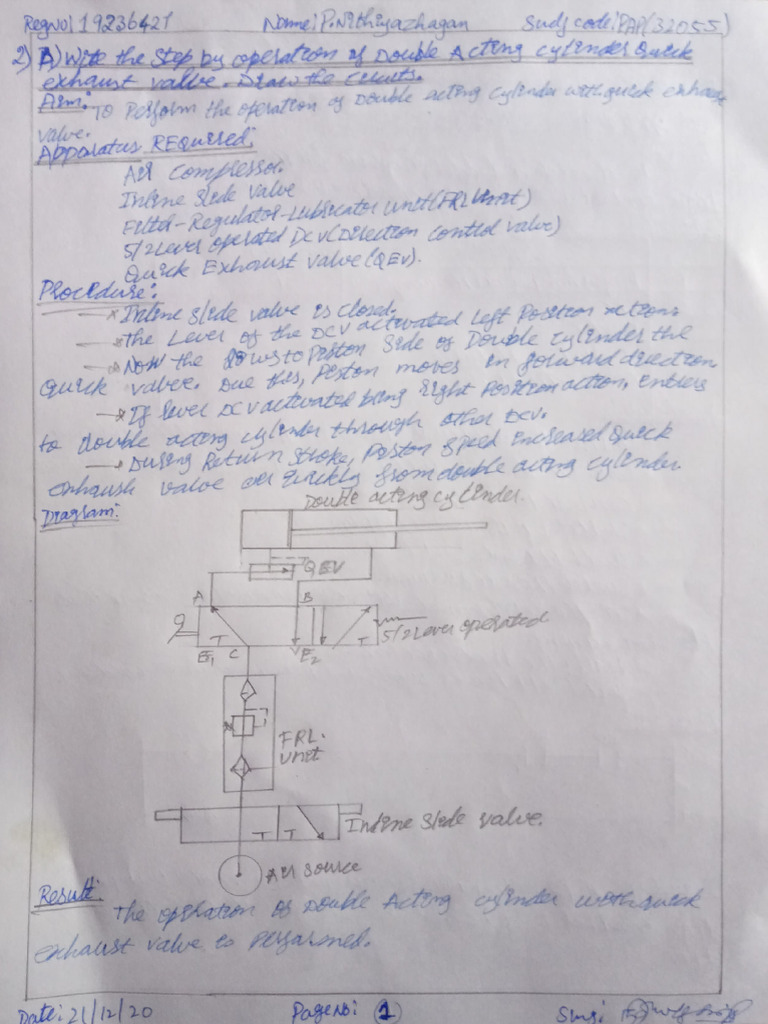 RegNo: 19236427 Name: P. Nithiyazhagan Subj code: PAP(32055)
2) A) Write the Step by operation of Double Acting cylinder Quick
exhaust valve. Draw the circuits.
Aim: To Perform the operation of Double acting cylinder with quick exhaust
valve.
Apparatus REQuired:
Air Compressor.
Inline Slide valve
Filter-Regulator-Lubricator unit (FRL Unit)
5/2 Lever operated DCV (Direction control valve)
Quick Exhaust valve (QEV).
Procedure:
→ Inline Slide valve is closed.
→ The Lever of the DCV activated Left Position actions
→ Now the flows to Piston Side of Double cylinder the
Quick valve. Due this, Piston moves in forward direction.
→ If lever DCV activated bring right Position action, Enters
to double acting cylinder through other DCV.
→ During Return Stroke, Piston Speed Increased Quick
exhaush valve air quickly from double acting cylinder.
Diagram:
Double acting cylinder.
QEV
A B
5/2 Lever operated
E1 C E2
FRL.
Unit
Inline Slide valve.
Air source
Result:
The operation of Double Acting cylinder with quick
exhaust valve is Performed.
Date: 21/12/20 Page No: 1 Sing: